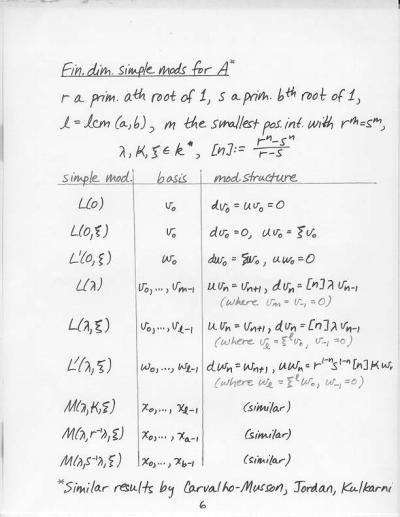 Fin. dim. simple mods for A*
r a prim. ath root of 1, s a prim. bth root of 1,
ℓ = lcm(a,b), m the smallest pos. int. with r^m = s^m,
λ, K, ξ ∈ k*, [n] := (r^n - s^n)/(r - s)
simple mod. basis mod. structure
L(0) v₀ dv₀ = uv₀ = 0
L(0,ξ) v₀ dv₀ = 0, uv₀ = ξv₀
L'(0,ξ) w₀ dw₀ = ξw₀, uw₀ = 0
L(λ) v₀, ..., v_{m-1} uvₙ = vₙ₊₁, dvₙ = [n]λvₙ₋₁
(where v_m = v₋₁ = 0)
L(λ,ξ) v₀, ..., v_{ℓ-1} uvₙ = vₙ₊₁, dvₙ = [n]λvₙ₋₁
(where v_ℓ = ξ^ℓ v₀, v₋₁ = 0)
L'(λ,ξ) w₀, ..., w_{ℓ-1} dwₙ = wₙ₊₁, uwₙ = r^{1-n}s^{1-n}[n]K wₙ
(where w_ℓ = ξ^ℓ w₀, w₋₁ = 0)
M(λ,K,ξ) x₀, ..., x_{ℓ-1} (similar)
M(λ,r⁻¹λ,ξ) x₀, ..., x_{a-1} (similar)
M(λ,s⁻¹λ,ξ) x₀, ..., x_{b-1} (similar)
*Similar results by Carvalho-Musson, Jordan, Kulkarni
6